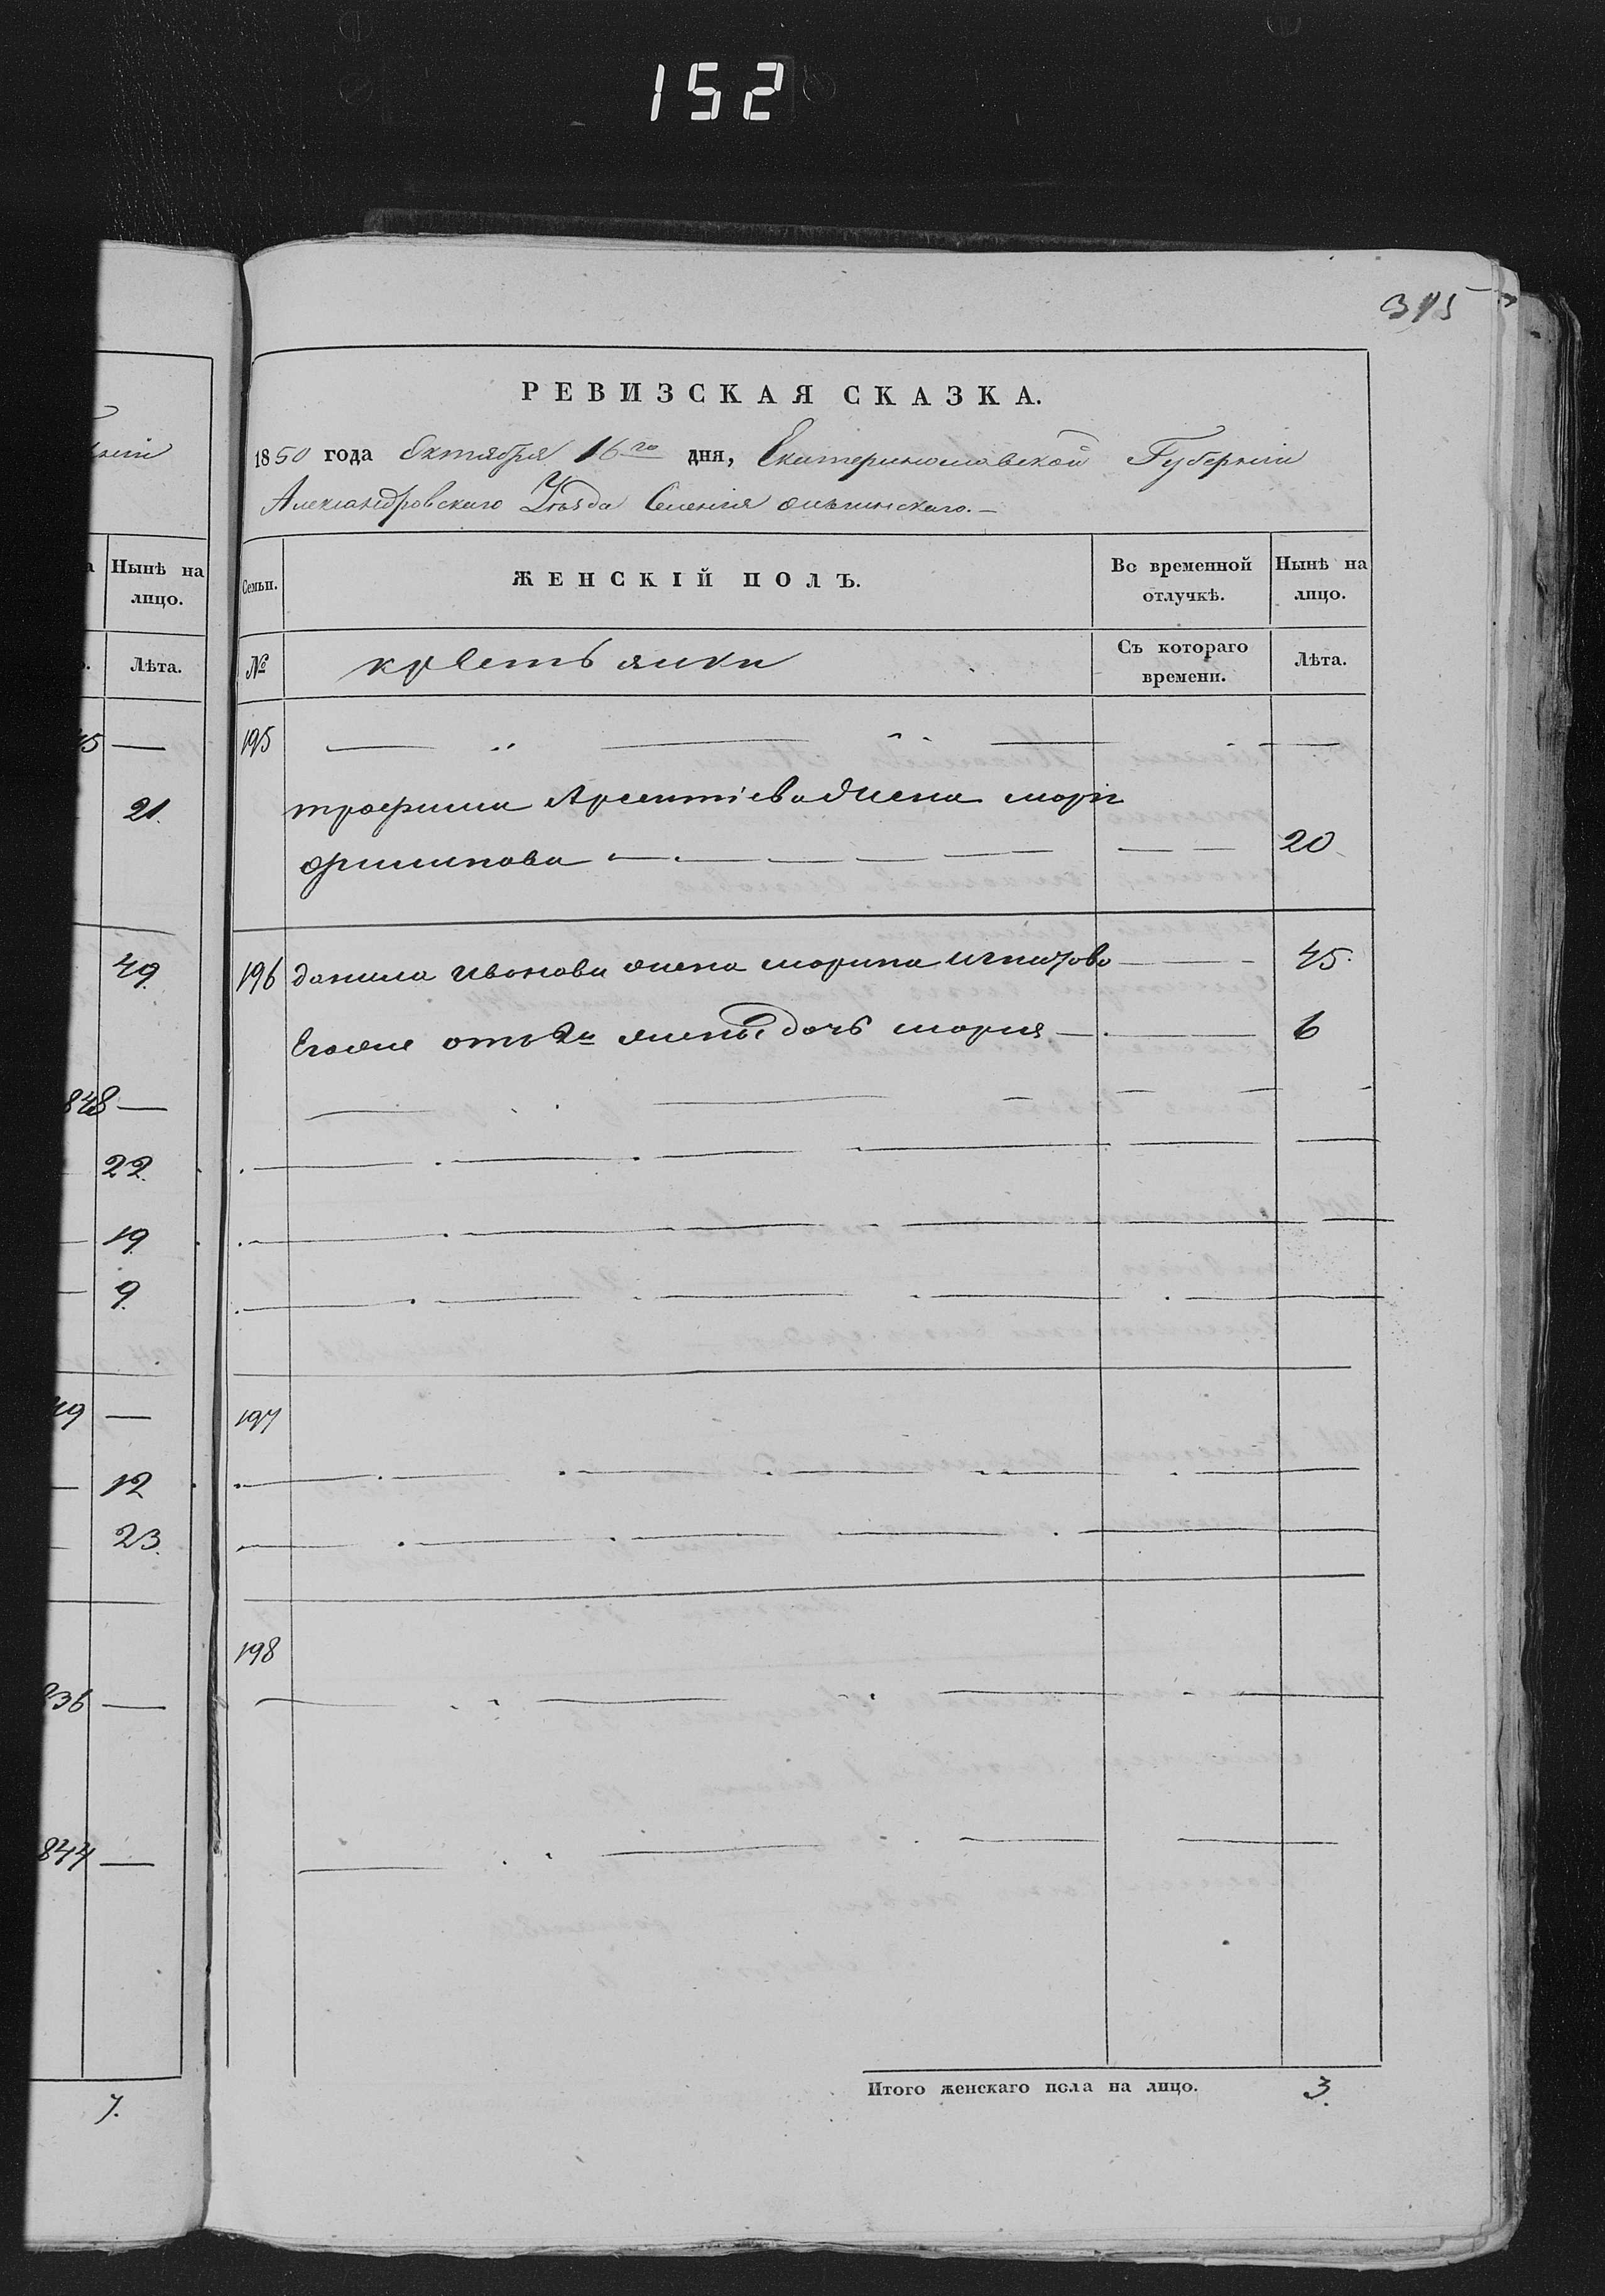 152
315
РЕВИЗСКАЯ СКАЗКА.
1850 года Октября 16го дня, Екатеринославской Губерніи
Александровскаго Уѣзда Селенія
ЖЕНСКІЙ ПОЛЪ.
Во временной отлучкѣ.
Нынѣ на лицо.
Семьи.
№
крестьянки
Съ котораго времени.
Лѣта.
195
трофима Арсентіева жена марія
филипова 20
196 данила иванова жена марина игнатова 45.
Егоже отъ 2й жены дочь марія 6
197
198
Итого женскаго пола на лицо. 3.
ніи
Нынѣ на лицо.
Лѣта.
45
21.
49.
848
22.
19.
9.
49
12
23.
836
844
7.